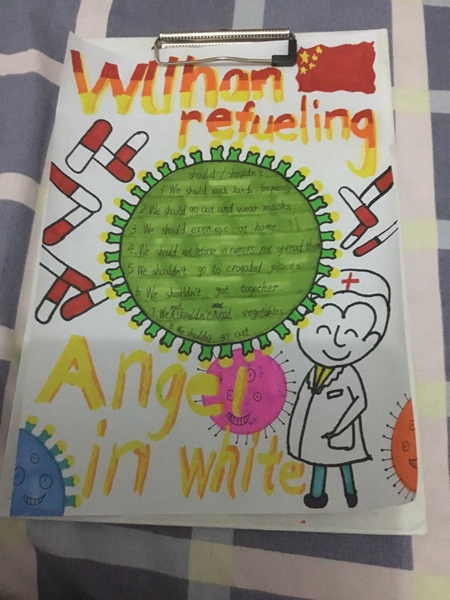 Wuhan
refueling
should / shouldn't
1 We should wash hands frequently
2. We should go out and wear masks
3. We should exercise at home
4. We should not believe in rumors, not spread them
5 We shouldn't go to crowded places
6. We shouldn't get together
7. We shouldn't eat vegetables
8. We shouldn't go out
Angel
in white